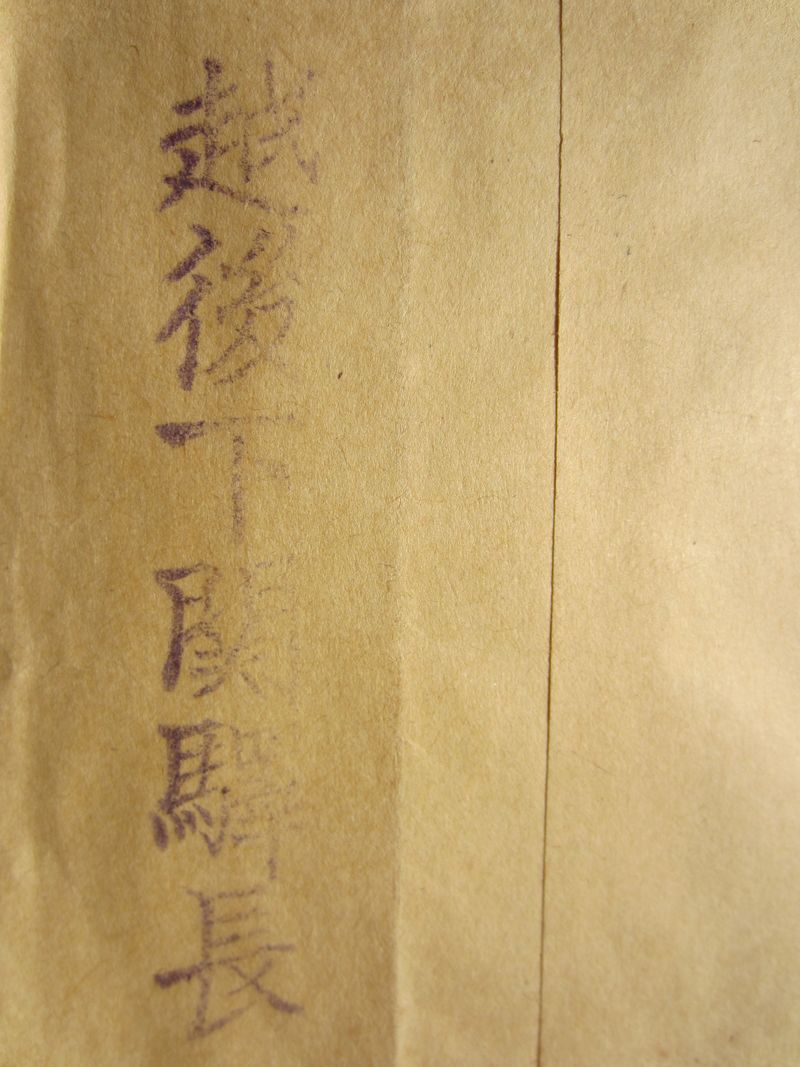 越後下関驛長